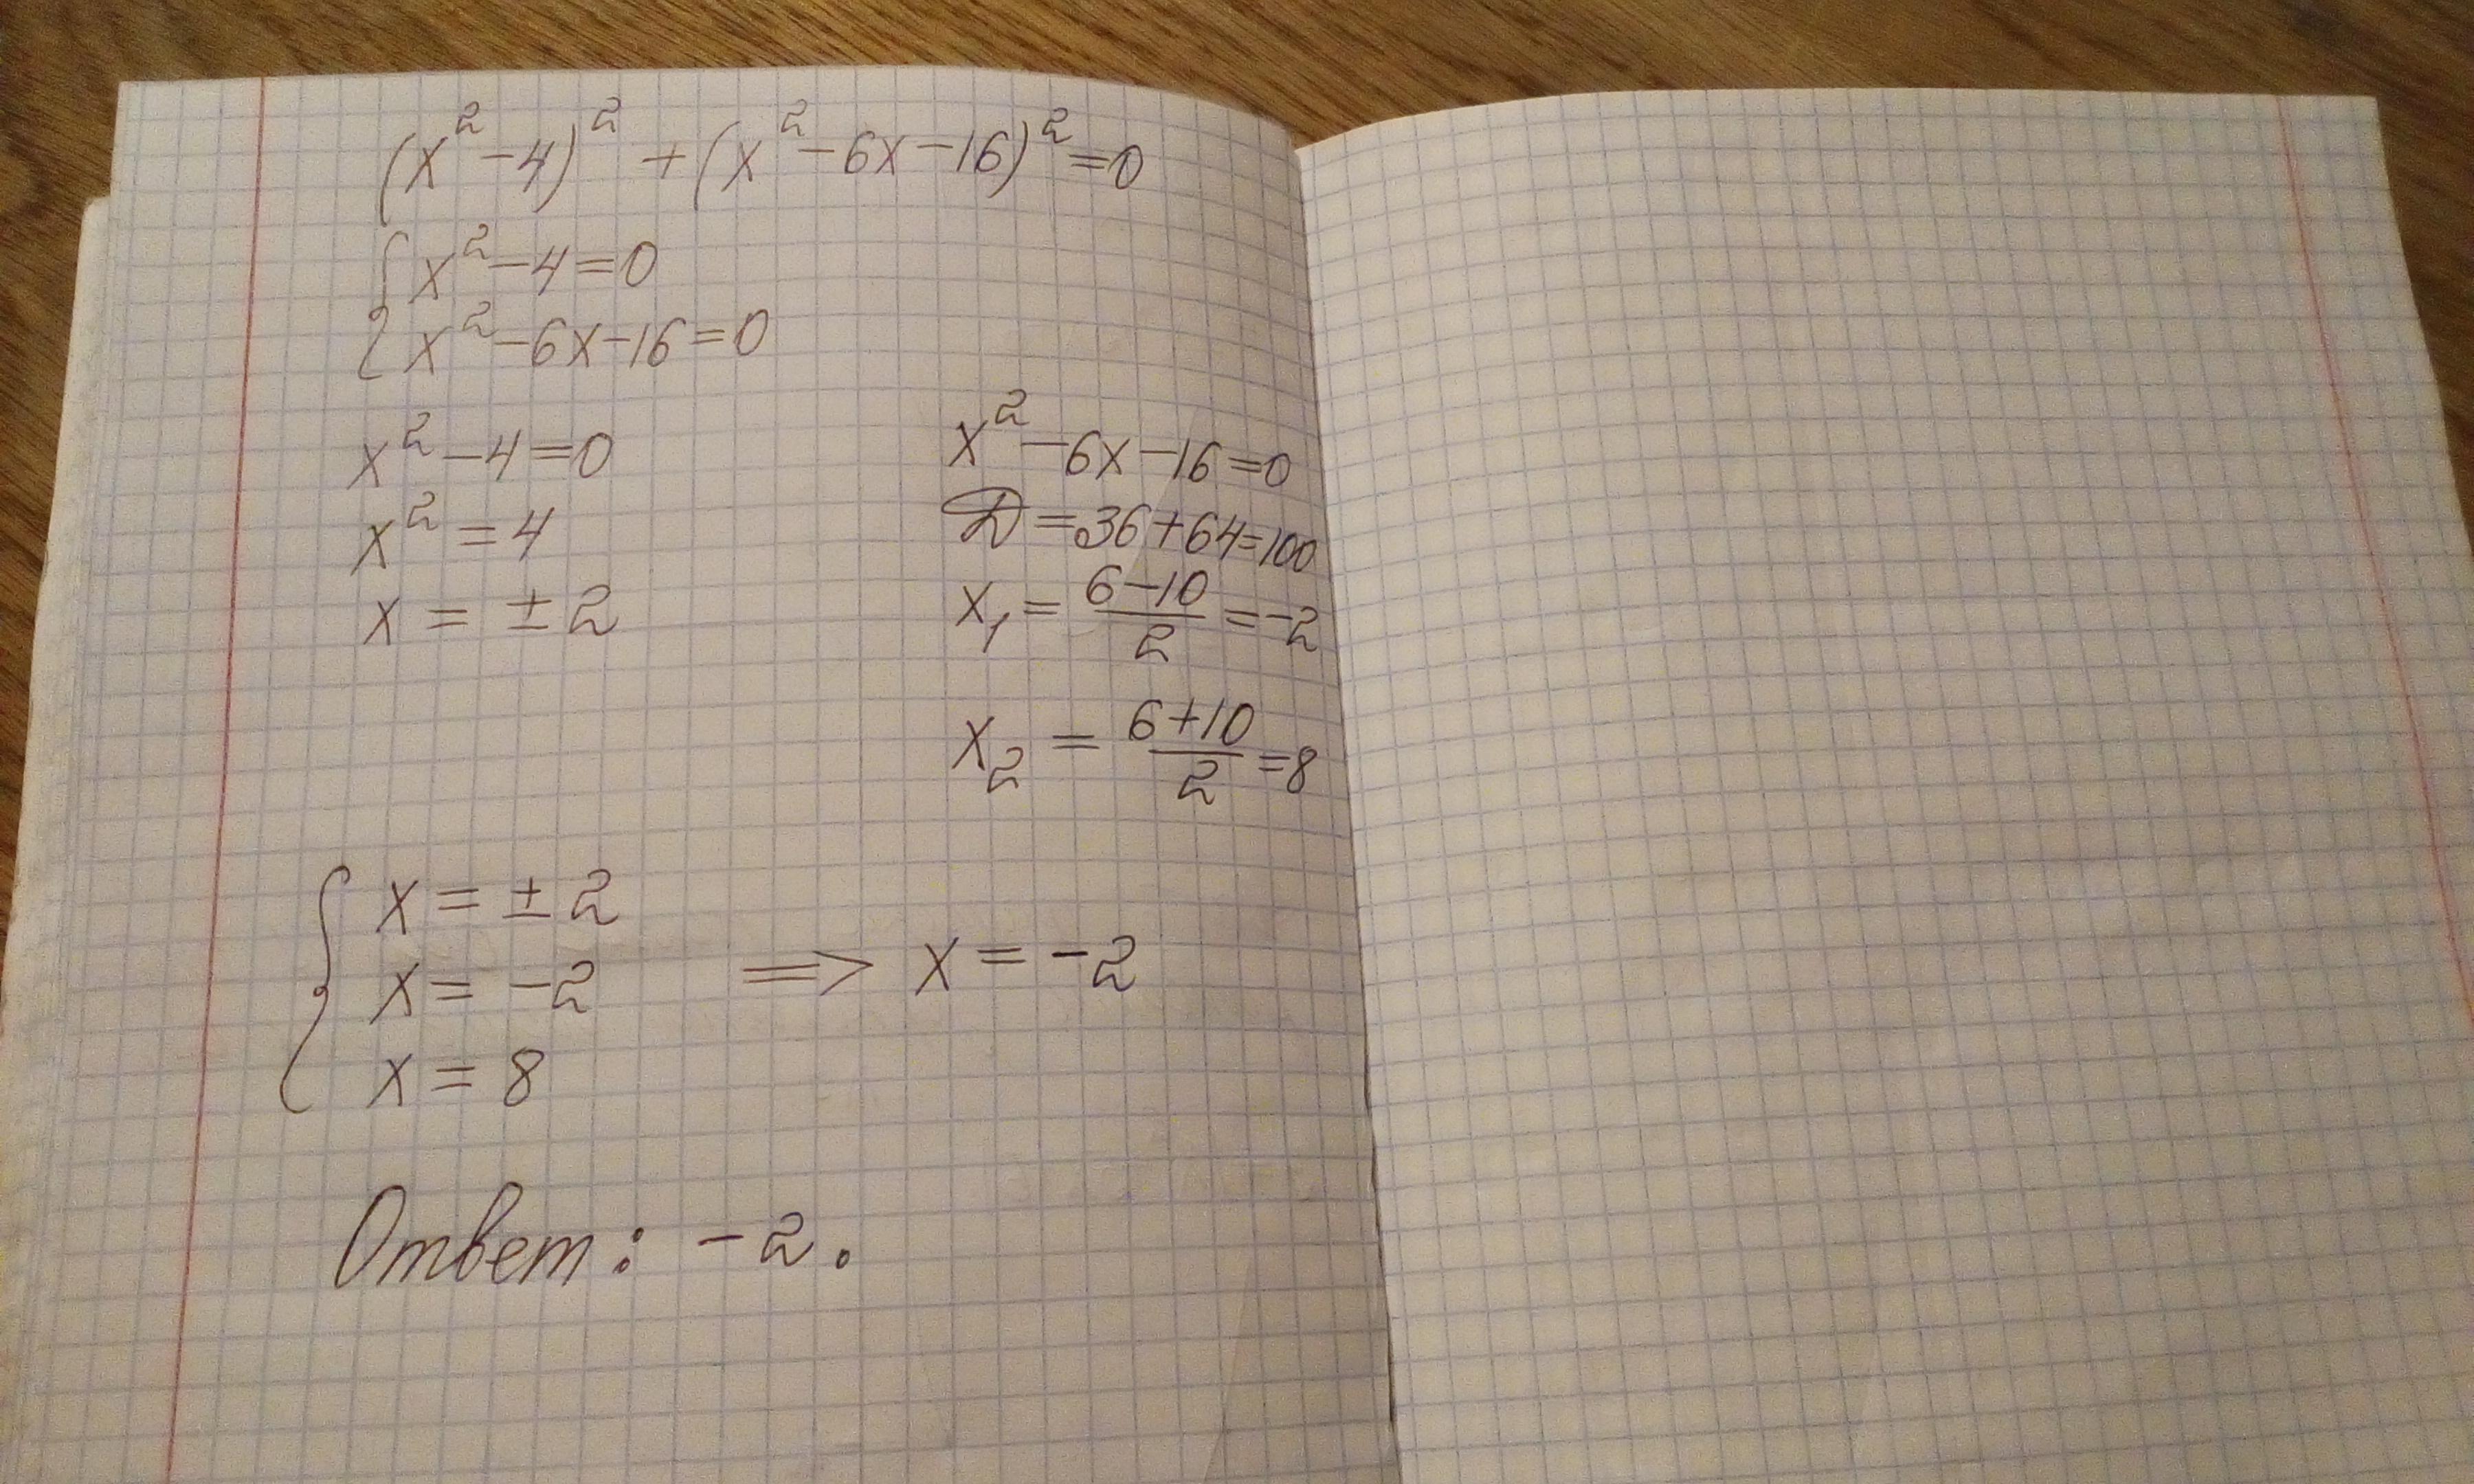 (x² - 4)² + (x² - 6x - 16)² = 0
{ x² - 4 = 0
{ x² - 6x - 16 = 0
x² - 4 = 0
x² = 4
x = ± 2
x² - 6x - 16 = 0
D = 36 + 64 = 100
x₁ = (6 - 10)/2 = -2
x₂ = (6 + 10)/2 = 8
{ x = ± 2
x = -2 => x = -2
x = 8
Ответ: -2.